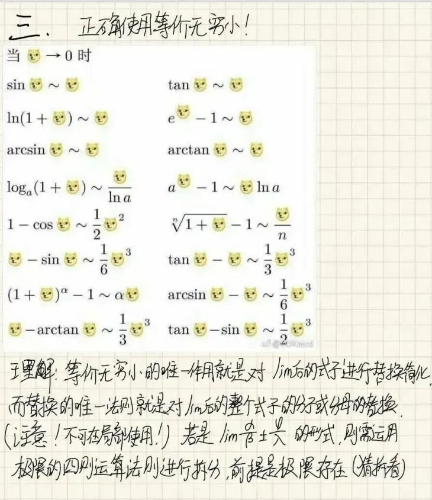 三. 正确使用等价无穷小!
当 🐱 → 0 时
sin 🐱 ~ 🐱 tan 🐱 ~ 🐱
ln(1 + 🐱) ~ 🐱 e^🐱 − 1 ~ 🐱
arcsin 🐱 ~ 🐱 arctan 🐱 ~ 🐱
logₐ(1 + 🐱) ~ 🐱/ln a a^🐱 − 1 ~ 🐱 ln a
1 − cos 🐱 ~ 1/2 🐱² ⁿ√(1 + 🐱) − 1 ~ 🐱/n
🐱 − sin 🐱 ~ 1/6 🐱³ tan 🐱 − 🐱 ~ 1/3 🐱³
(1 + 🐱)^α − 1 ~ α🐱 arcsin 🐱 − 🐱 ~ 1/6 🐱³
🐱 − arctan 🐱 ~ 1/3 🐱³ tan 🐱 − sin 🐱 ~ 1/2 🐱³
理解: 等价无穷小的唯一作用就是对 lim后的式子进行替换简化,
而替换的唯一法则就是对lim后的整个式子的分子或分母的替换.
(注意! 不可在局部使用!) 若是 lim 的形式, 则需运用
极限的四则运算法则进行拆分, 前提是极限存在 (猜拆看)